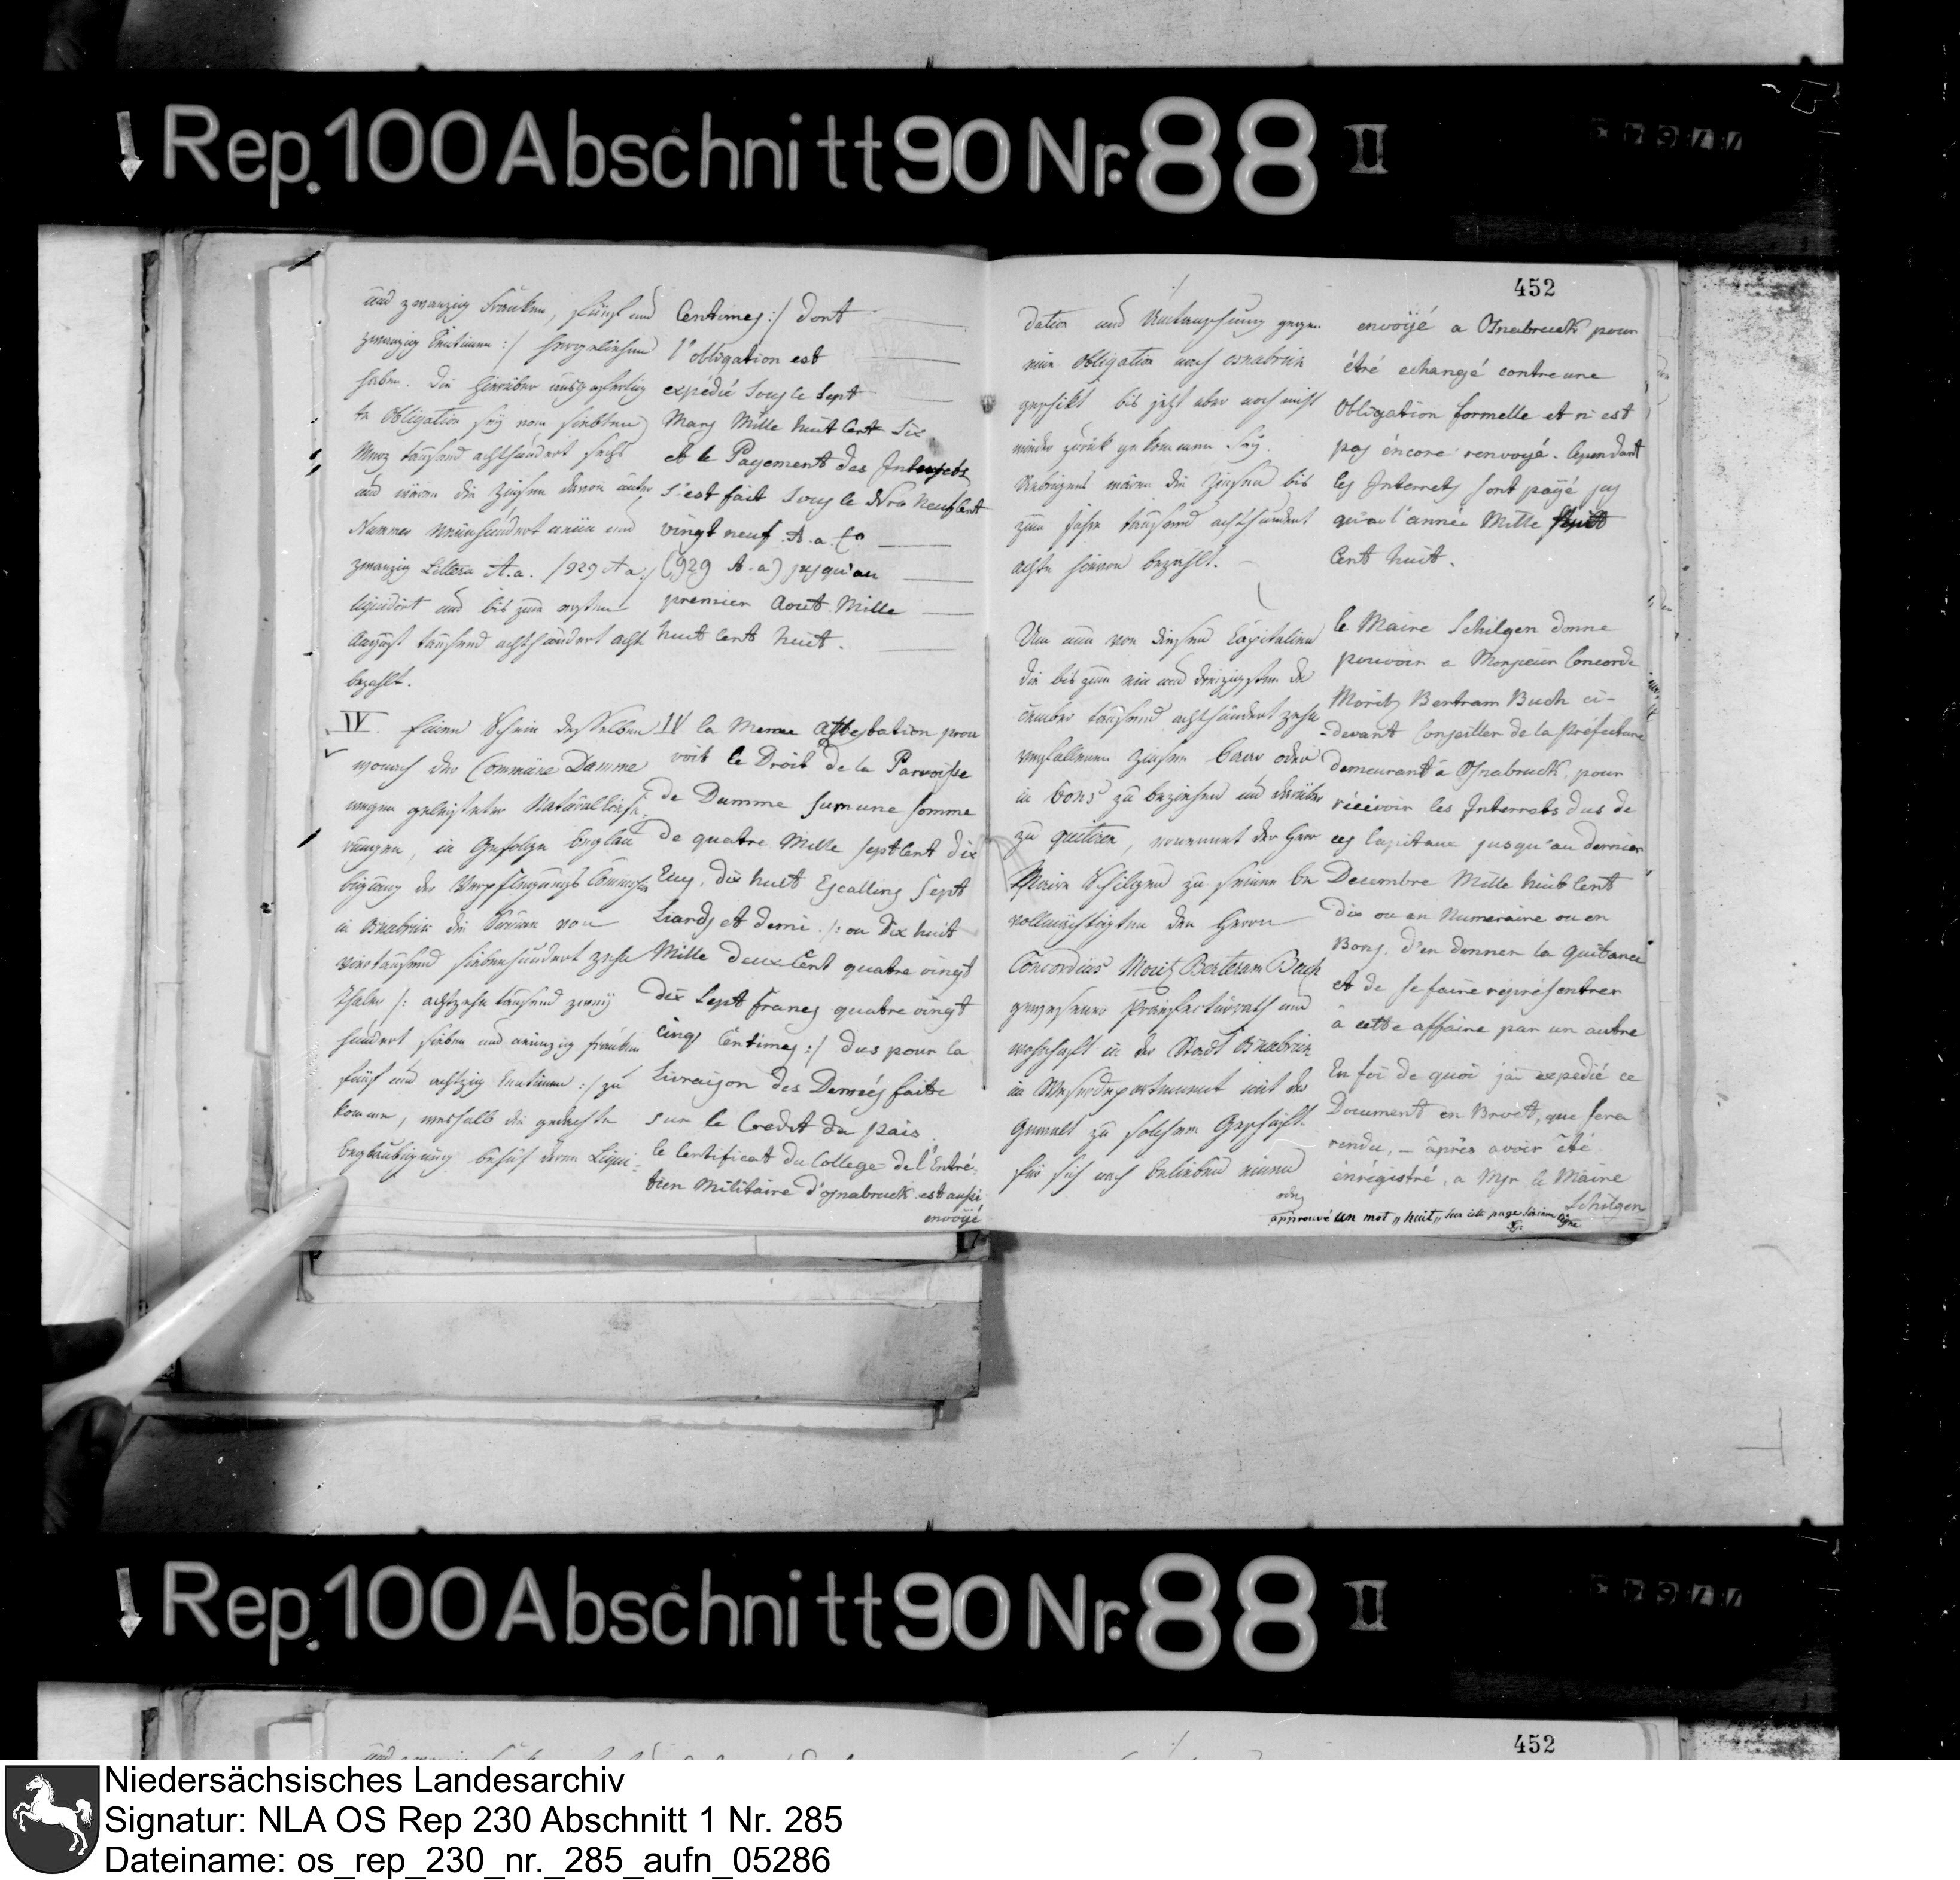 Rep. 100 Abschnitt 90 Nr. 88 II
und zwanzig Franken, fünf und
zwanzig Centimen :/ hergeliehen
haben. Die hierüber ausgefertig
te Obligation sey vom siebten
Merz tausend achthundert sechs
und wären die Zinsen davon unter
Nummer neunhundert neun und
zwanzig Littera A.a. /929 A a:/
liquidirt und bis zum ersten
August tausend achthundert acht
bezahlt.
IV. Einen Schein desselben
wonach der Commüne Damme
wegen geleisteter Naturalliefe,
rungen, in Gefolge Beglau
bigung der Verpflegungs Commission
in Osnabrück die Summe von
viertausend siebenhundert zehn
Thaler /: achtzehn tausend zwey
hundert sieben und neunzig franken
fünf und achtzig Centimen :/ zu
komme, weshalb die gedachte
Beglaubigung behuf deren Liqui-
Centimes :/ dont
l'obligation est
expédié sous le Sept
Mars Mille huit Cent Six
et le Payement des Interets
s'est fait sous le Nro neuf Cent
vingt neuf A. a. Co
(929 A. a) jusqu'au
premier Aout Mille
huit Cent huit.
IV la meme attestation prou
voit le Droit de la Parroisse
de Damme sur une somme
de quatre Mille Sept Cent dix
Ecus, dix huit Escallins Sept
Liards et demi /: ou Dix huit
Mille deux Cent quatre vingt
dix Sept francs quatre vingt
cinq Centimes :/ dus pour la
Livraison des Denreés faite
sur le Credit du païs.
le Certificat du College de l'Entré-
tien Militaire d'osnabruck est aussi
envoÿé
452
dation und Umtauschung gegen
eine Obligation nach Osnabrück
geschickt bis jetzt aber noch nicht
wieder zurück gekommen sey.
Uebrigens wären die Zinsen bis
zum Jahre tausend achthundert
acht hievon bezahlt.
Um nun von diesen Capitalien
die bis zum ein und dreizigsten De
cember tausend achthundert zehn
verfallenen Zinsen baar oder
in bons zu beziehen und darüber
zu quitiren, ernennet der Herr
Maire Schilgen zu seinen be
vollmächtigten den Herrn
Concordius Moritz Bertram Buch
gewesener Präfecturrath und
wohnhaft in der Stadt Osnabrück
im Weserdepartement mit der
Gewalt zu solchem Geschäft
für sich nach belieben einen
envoÿé a Osnabruck pour
étré echangé contre une
Obligation formelle et n'est
pas éncore renvoÿé. Cependant
les Interrets sont paÿé jus
qu'au l'année Mille huit
Cent huit.
le Maire Schilgen donne
pouvoir a Monsieur Concorde
Moritz Bertram Buch ci-
-devant Conseiller de la Préfecture
demeurant á Osnabruck, pour
récévoir les Interrets dus de
ces Capitaux jusqu'au dernier
Decembre Mille huit Cent
dix ou en Numeraire ou en
Bons. d'en donner la quitance
et de se faire représentrer
à cette affaire par un autre
En foi de quoi j'ai expedié ce
Document en Brvet, que sera
rendu, - après avoir été
énrégistré, a Msr le Maire
Schilgen
approuvé un mot „huit„ sur cette page sixieme ligne
Rep. 100 Abschnitt 90 Nr. 88 II
452
Niedersächsisches Landesarchiv
Signatur: NLA OS Rep 230 Abschnitt 1 Nr. 285
Dateiname: os_rep_230_nr._285_aufn_05286